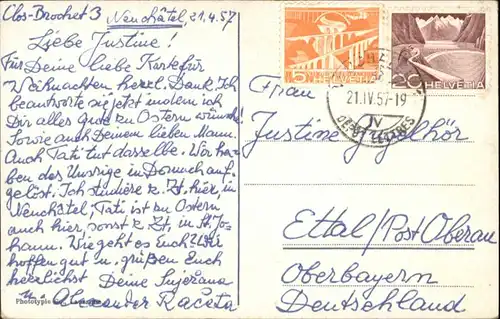 Clos-Brochet 3 Neuchâtel, 21.4.57
Liebe Justine!
Für Deine liebe Karte für
Weihnachten herzl. Dank. Ich
beantworte sie jetzt indem ich
Dir alles gute zu Ostern wünsche!
Sowie auch Deinem lieben Mann.
Auch Tati tut dasselbe. Wir ha-
ben das Unsrige in Dornach auf-
gelöst. Ich studiere z. Zt. hier, in
Neuchâtel, Tati ist zu Ostern
auch hier, sonst z. Zt. in St. Jo-
hann. Wie geht es Euch? Wir
hoffen gut u. grüßen Euch
herzlichst Deine
u. Alexander Raceta
Phototypie
5 HELVETIA
20 HELVETIA
21.IV.57-19
IV
Frau
Justine
Ettal/Post Oberau
Oberbayern
Deutschland